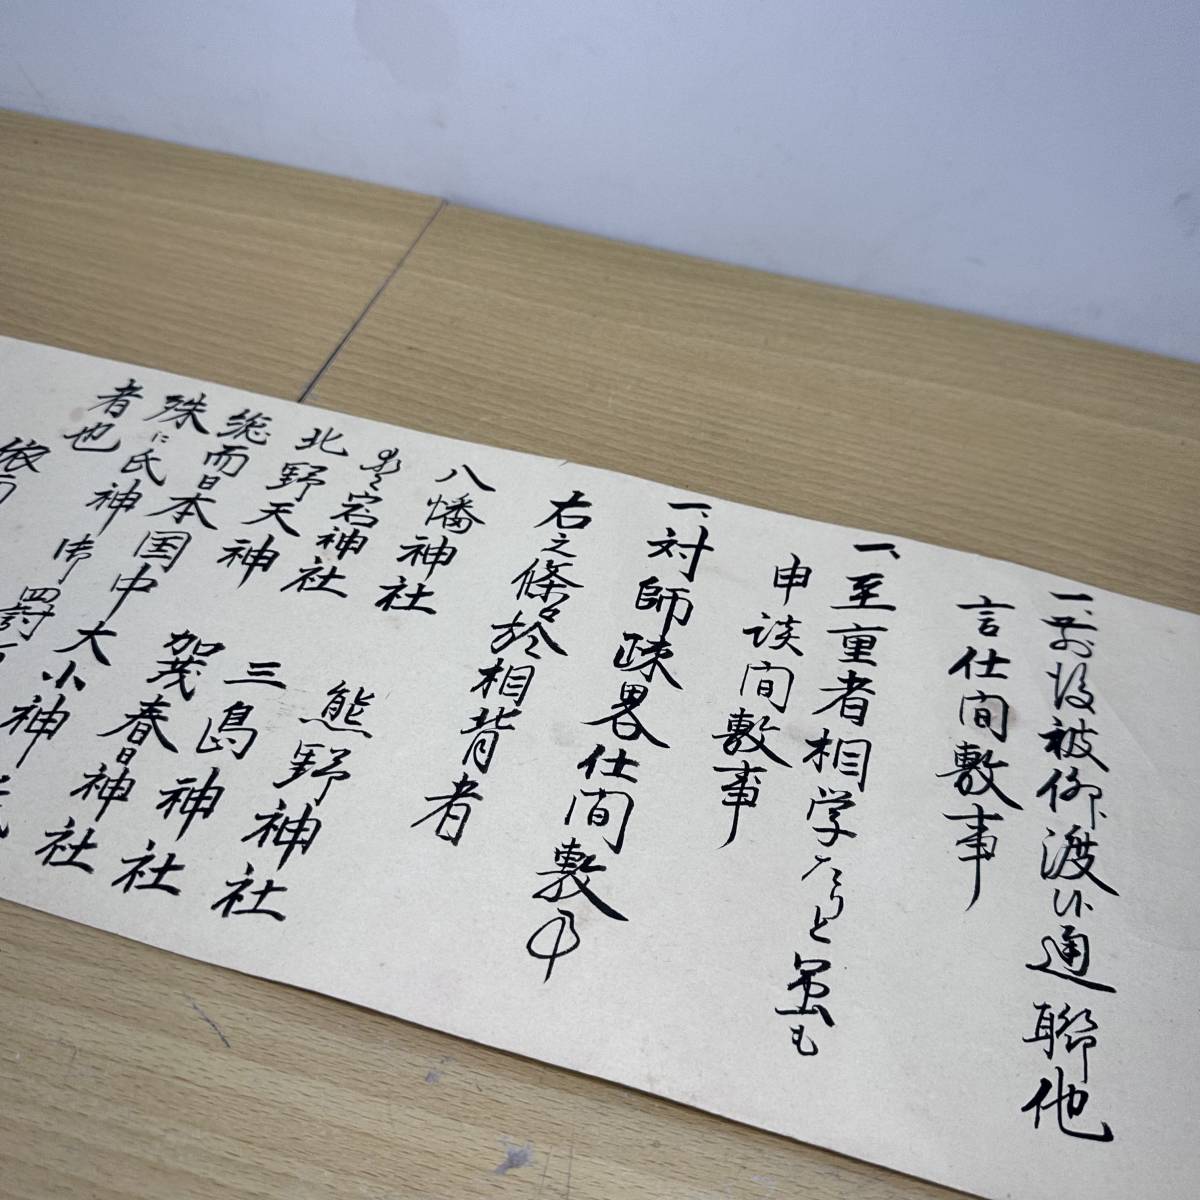 一、前後被仰渡候通聊他
言仕間敷事
一、至重者相学たりと虽も
申談間敷事
一、対師疎畧仕間敷事
右之條名於相背者
八幡神社 熊野神社
愛宕神社 三島神社
北野天神 加茂春日神社
総而日本国中大小神社
殊ニ氏神 御罸
者也
依而